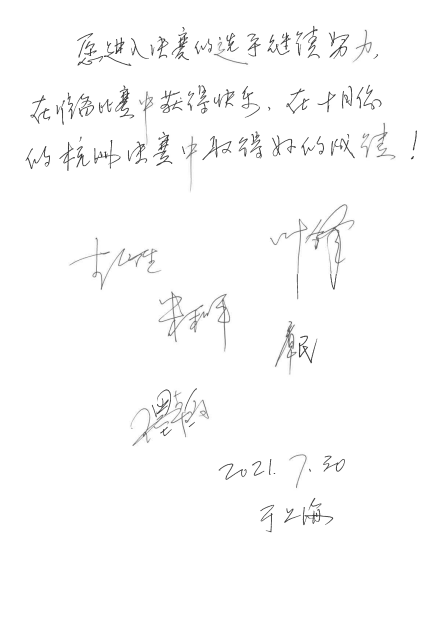 愿进入决赛的选手继续努力,
在准备比赛中获得快乐，在十月份
的杭州决赛中取得好的成绩！
叶锋
朱和平
章民
2021.7.30
于上海